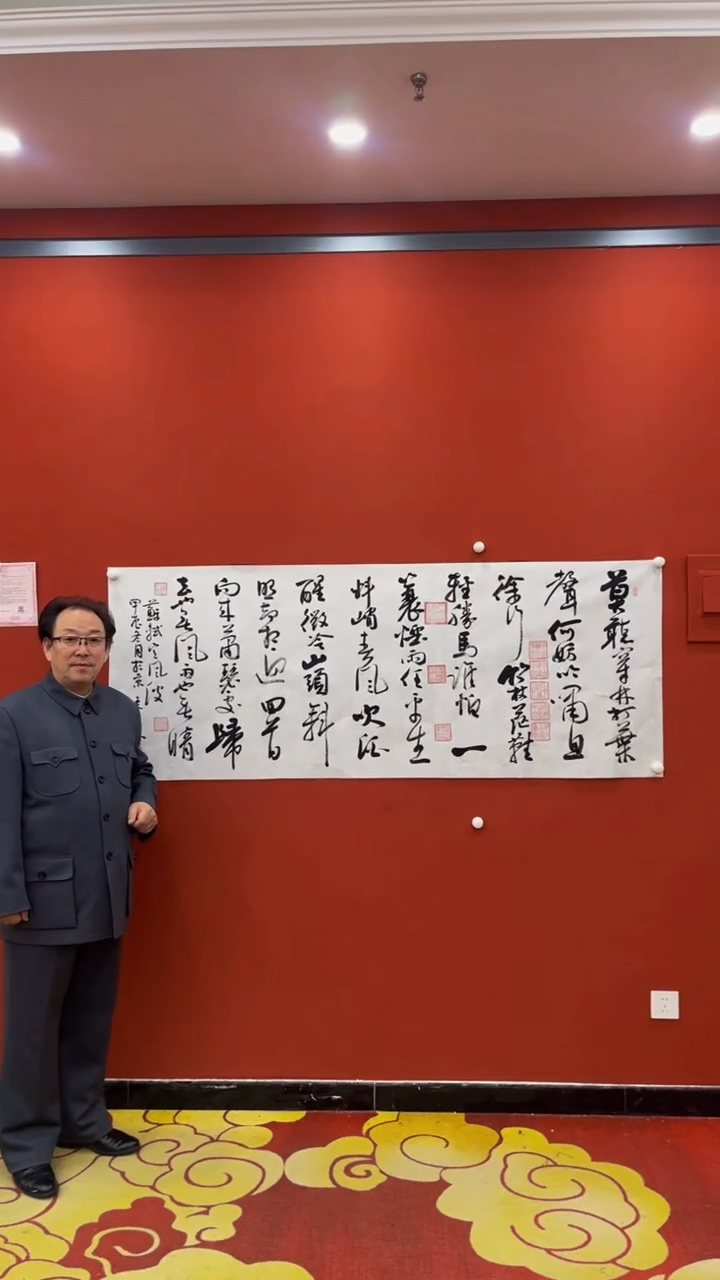 莫聽穿林打葉
聲何妨吟嘯且
徐行竹杖芒鞋
輕勝馬誰怕一
蓑煙雨任平生
料峭春风吹酒
醒微冷山頭斜
照却相迎回首
向来蕭瑟處歸
去也无风雨也无晴
蘇軾定风波
甲辰冬月於京